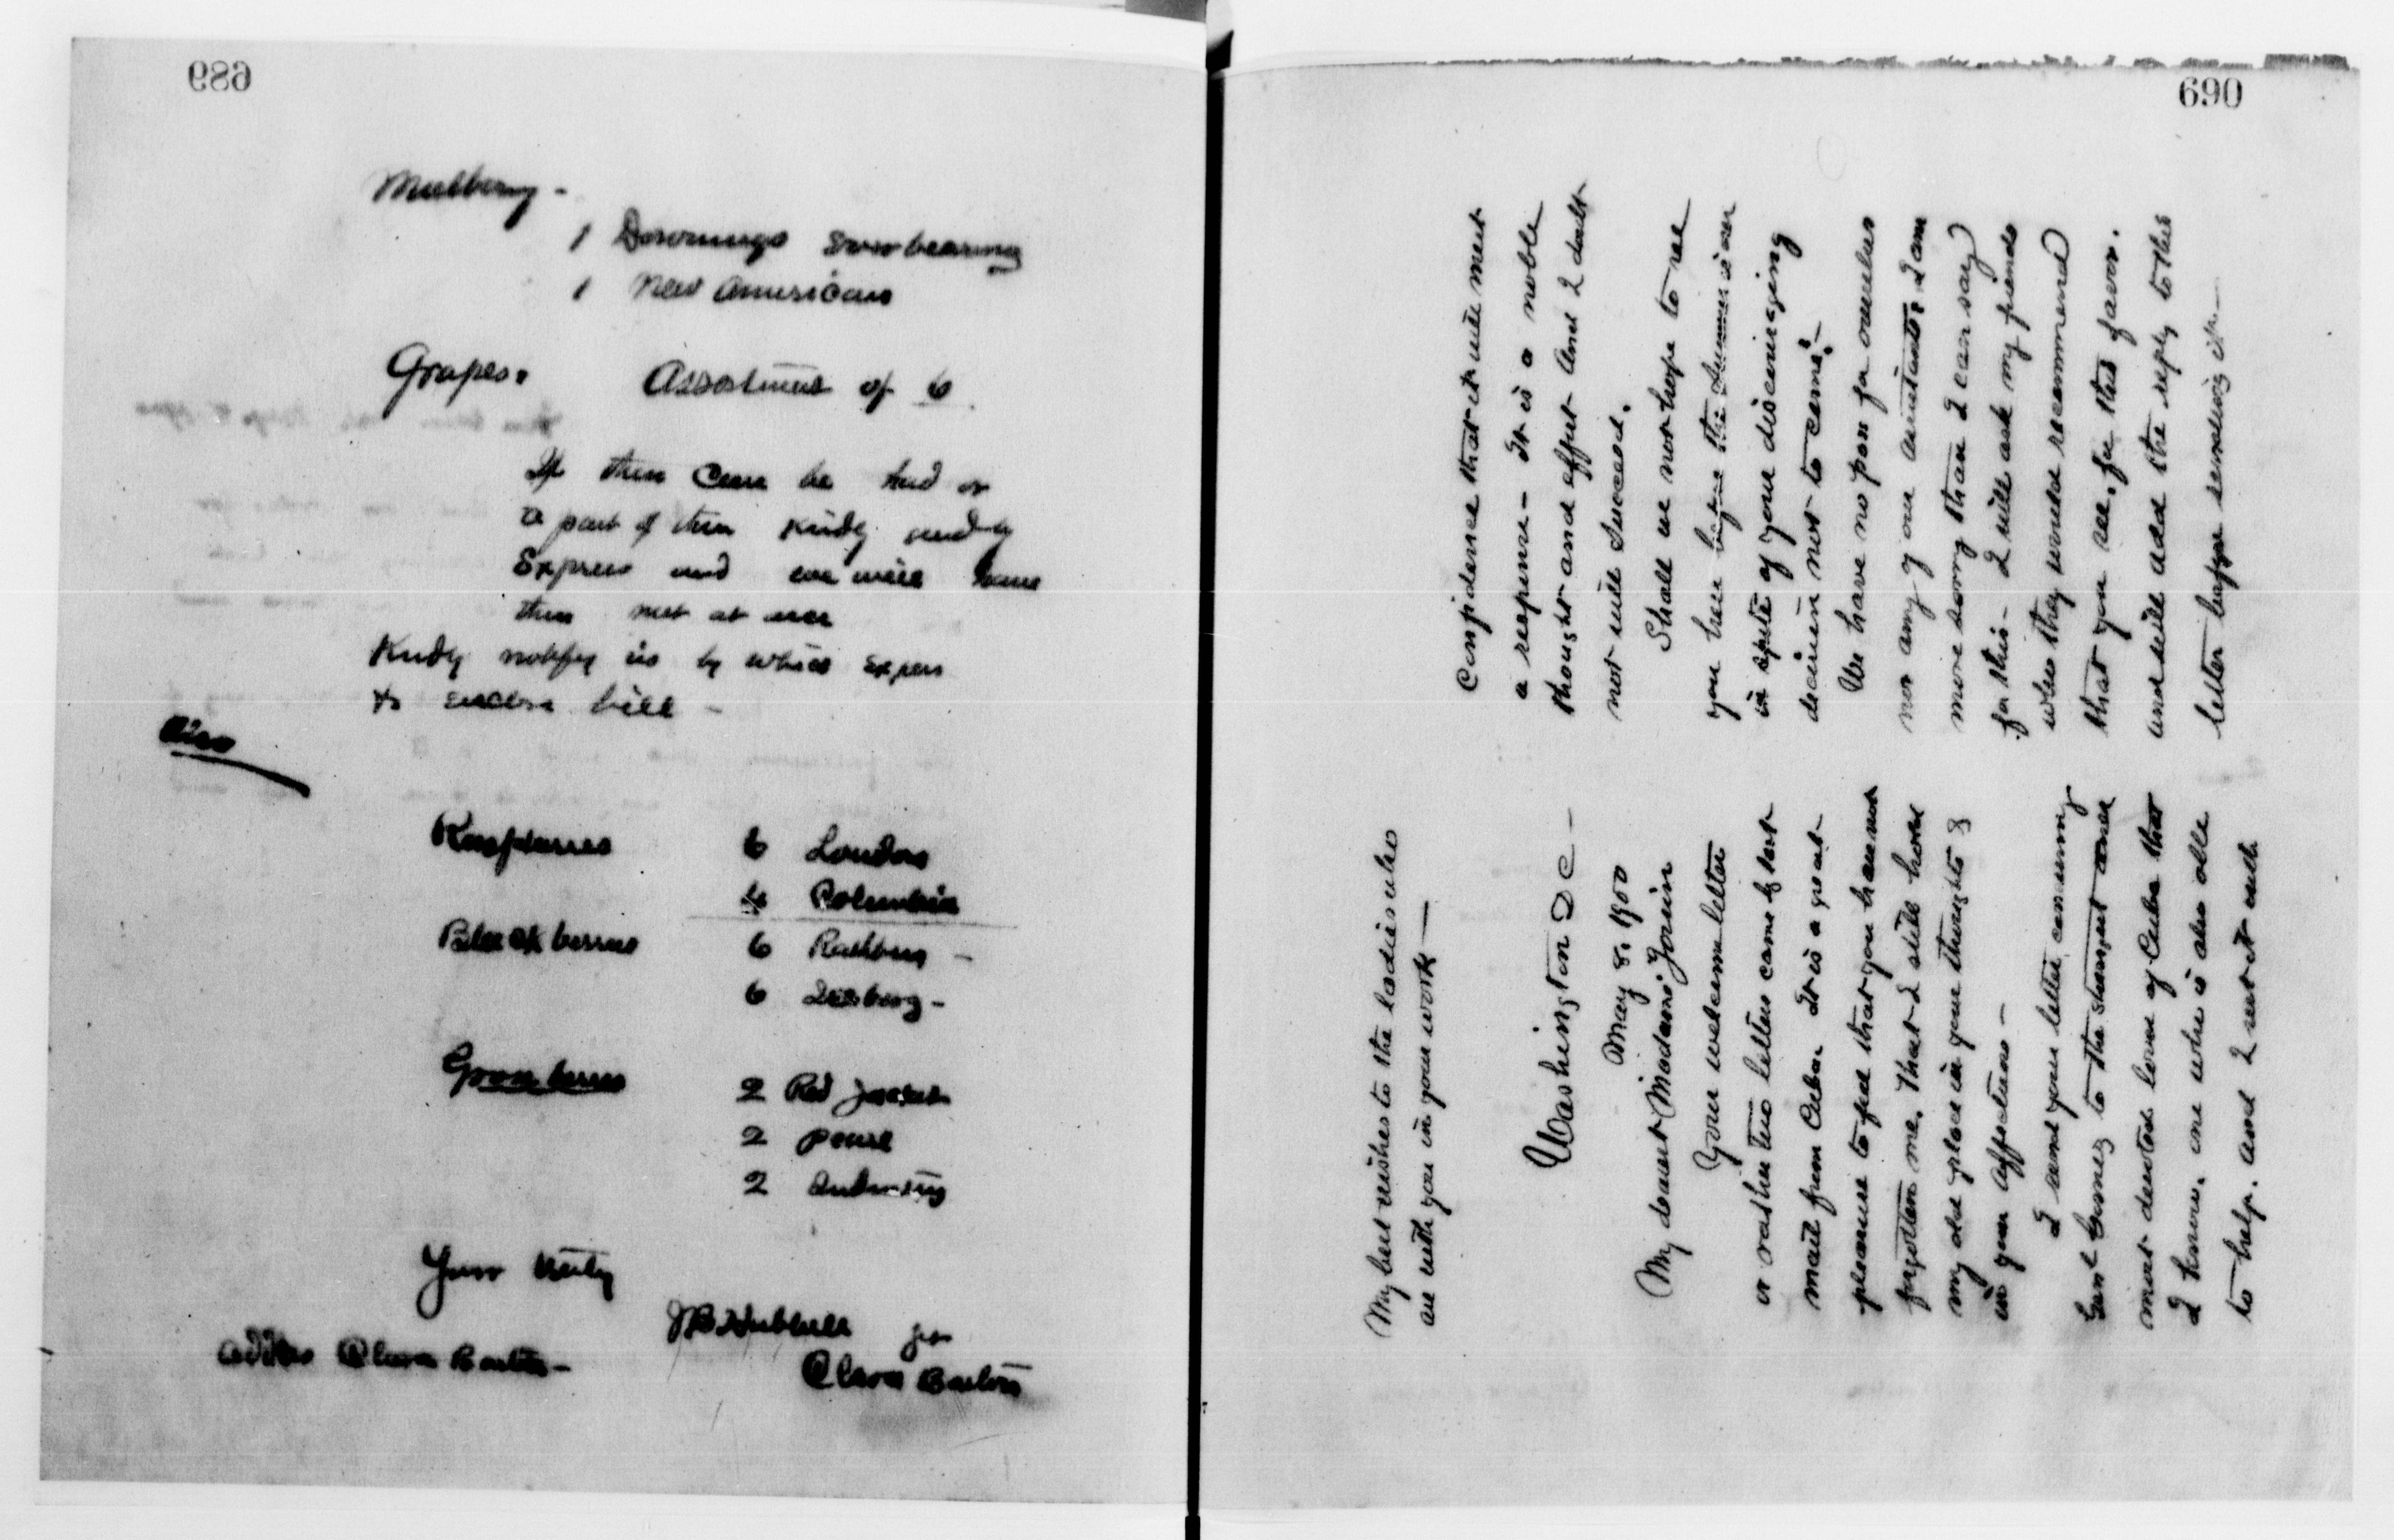 689
Mulberry -
1 Downings Everbearing
1 New American
Grapes. Assortment of 6
If these can be had or
a part of them kindly send by
Express and we will have
them met at once
Kindly notify us by which Express
& enclose bill -
Also
Raspberries 6 Loudon
6 Columbian
Blackberries 6 Rathbun -
6
Gooseberries 2 Red Jacket
2 Pearl
2 Industry
Yours truly
J B Hubbell for
Clara Barton
address Clara Barton -
690
My best wishes to the ladies who
are with you in your work -
Washington D C -
May 8. 1900
My dearest Madame
Your welcome letter
or rather two letters came by last
mail from Cuba. It is a great
pleasure to feel that you have not
forgotten me. that I still hold
my old place in your thoughts &
in your affections -
I send your letter concerning
Genl Gomez to the strongest and
most devoted lover of Cuba that
I know. one who is also able
to help. and I sent it with
Confidence that it will meet
a response - It is a noble
thought and effort and I doubt
not will succeed.
Shall we not hope to see
you here before the Summer is over
in spite of your discouraging
decision not to come? -
We have no pass for ourselves
nor any of our assistants, I am
more sorry than I can say
for this - I will ask my friends
who they would recommend
that you see. for this favor.
and will add the reply to this
letter before sending it -